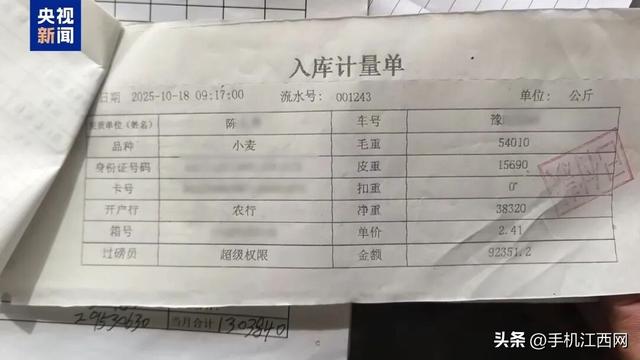 央视
新闻
入库计量单
日期 2025-10-18 09:17:00 流水号: 001243 单位: 公斤
售货单位(姓名) 陈 车号 豫
品种 小麦 毛重 54010
身份证号码 皮重 15690
卡号 扣重 0
开户行 农行 净重 38320
箱号 单价 2.41
过磅员 超级权限 金额 92351.2
29530630 当月合计 1303840
头条 @手机江西网